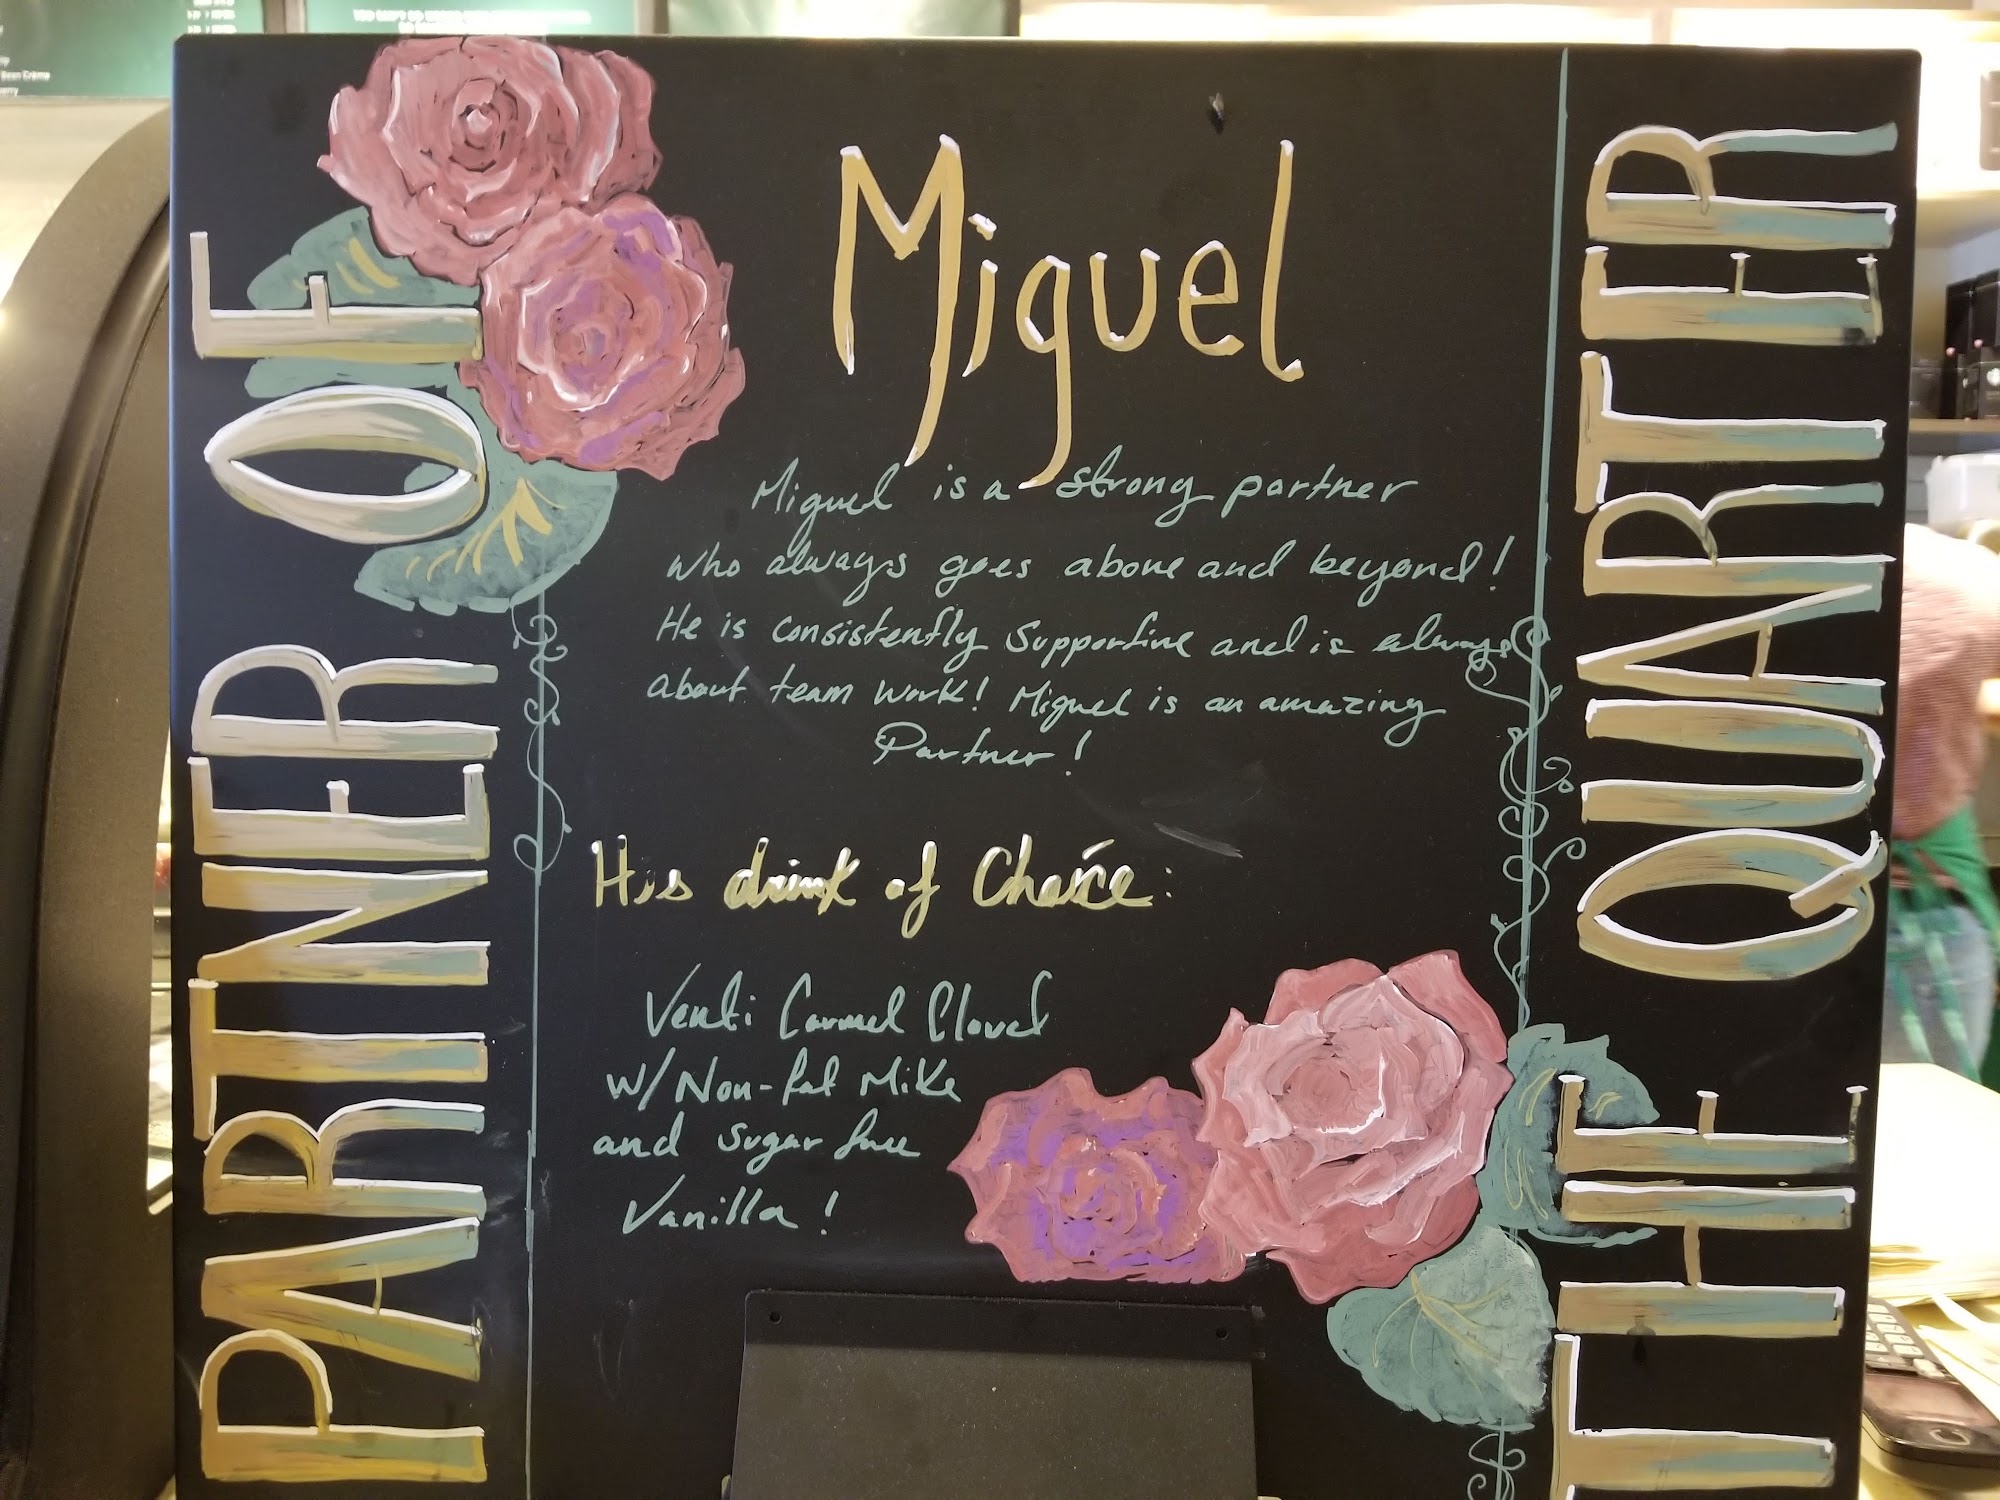 PARTNER OF
THE QUARTER
Miguel
Miguel is a strong partner
who always goes above and beyond!
He is consistently supportive and is always
about team work! Miguel is an amazing
Partner!
His drink of Choice:
Venti Carmel Cloud
w/ Non-fat Milk
and sugar free
Vanilla!
Bean Crème